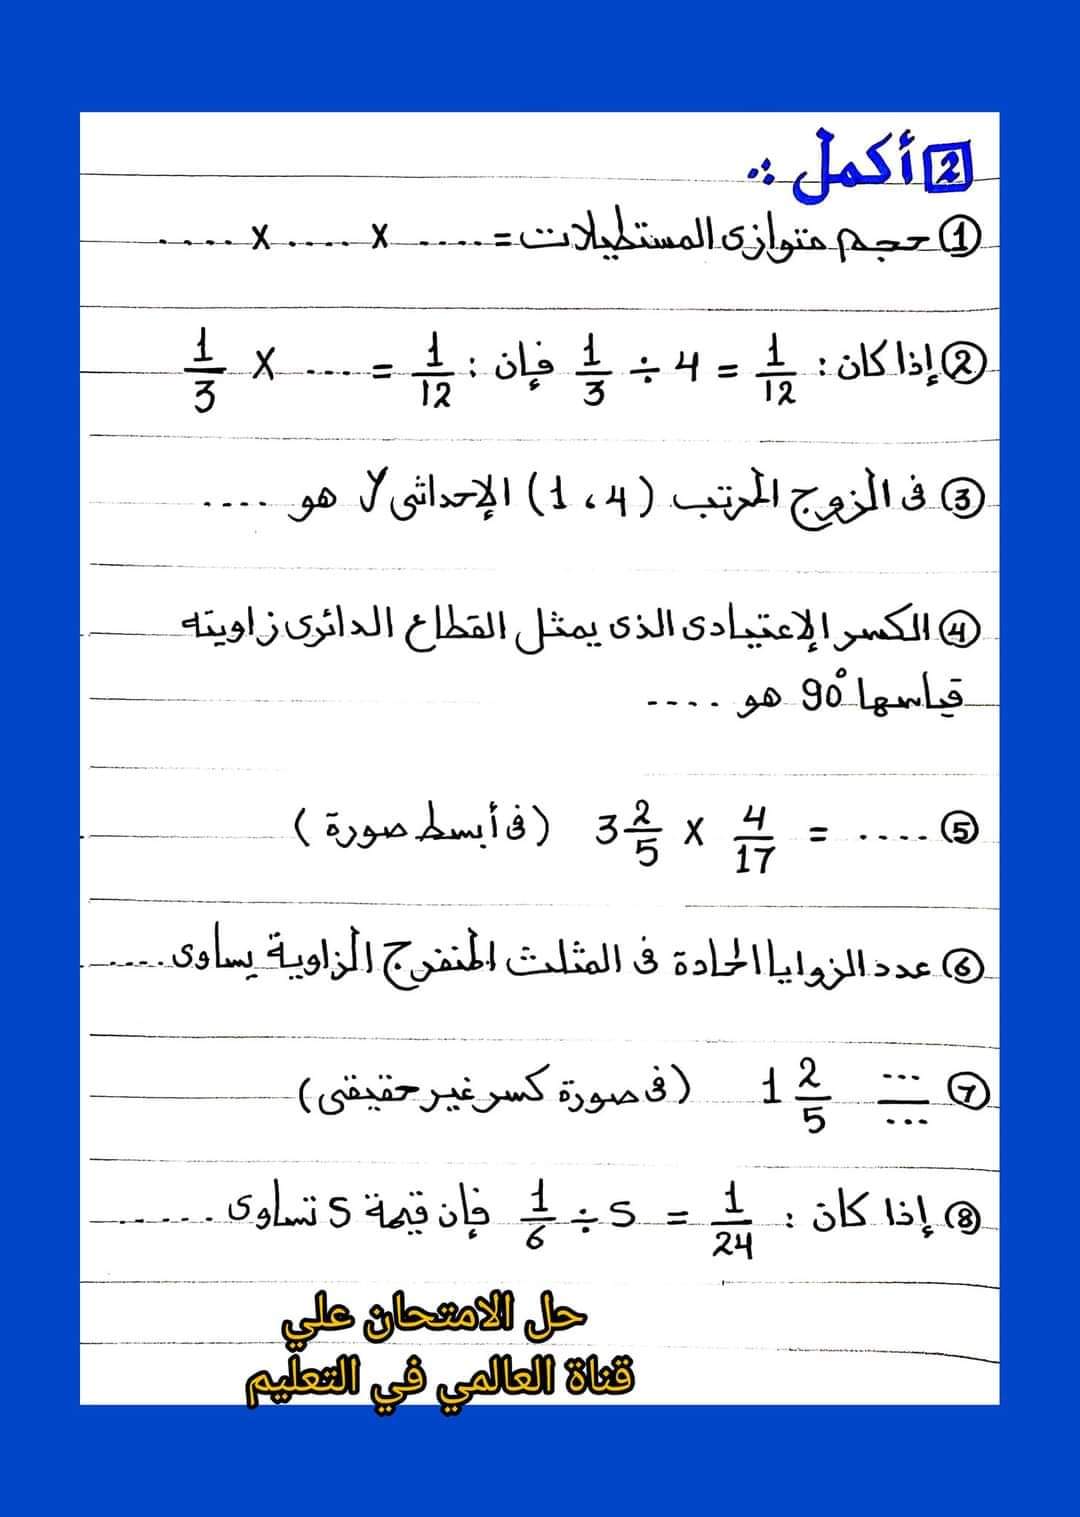 2 أكمل :.
① حجم متوازى المستطيلات = .... X .... X ....
② إذا كان : 1/12 = 4 ÷ 1/3 فإن : 1/12 = .... X 1/3
③ فى الزوج المرتب (1 ، 4) الإحداثى y هو ....
④ الكسر الإعتيادى الذى يمثل القطاع الدائرى زاويته
قياسها 90° هو ....
⑤ .... = 3 2/5 X 4/17 (فى أبسط صورة)
⑥ عدد الزوايا الحادة فى المثلث المنفرج الزاوية يساوى ....
⑦ .../... 1 2/5 (فى صورة كسر غير حقيقى)
⑧ إذا كان : 1/24 = 1/6 ÷ S فإن قيمة S تساوى ......
حل الامتحان علي
قناة العالمي في التعليم